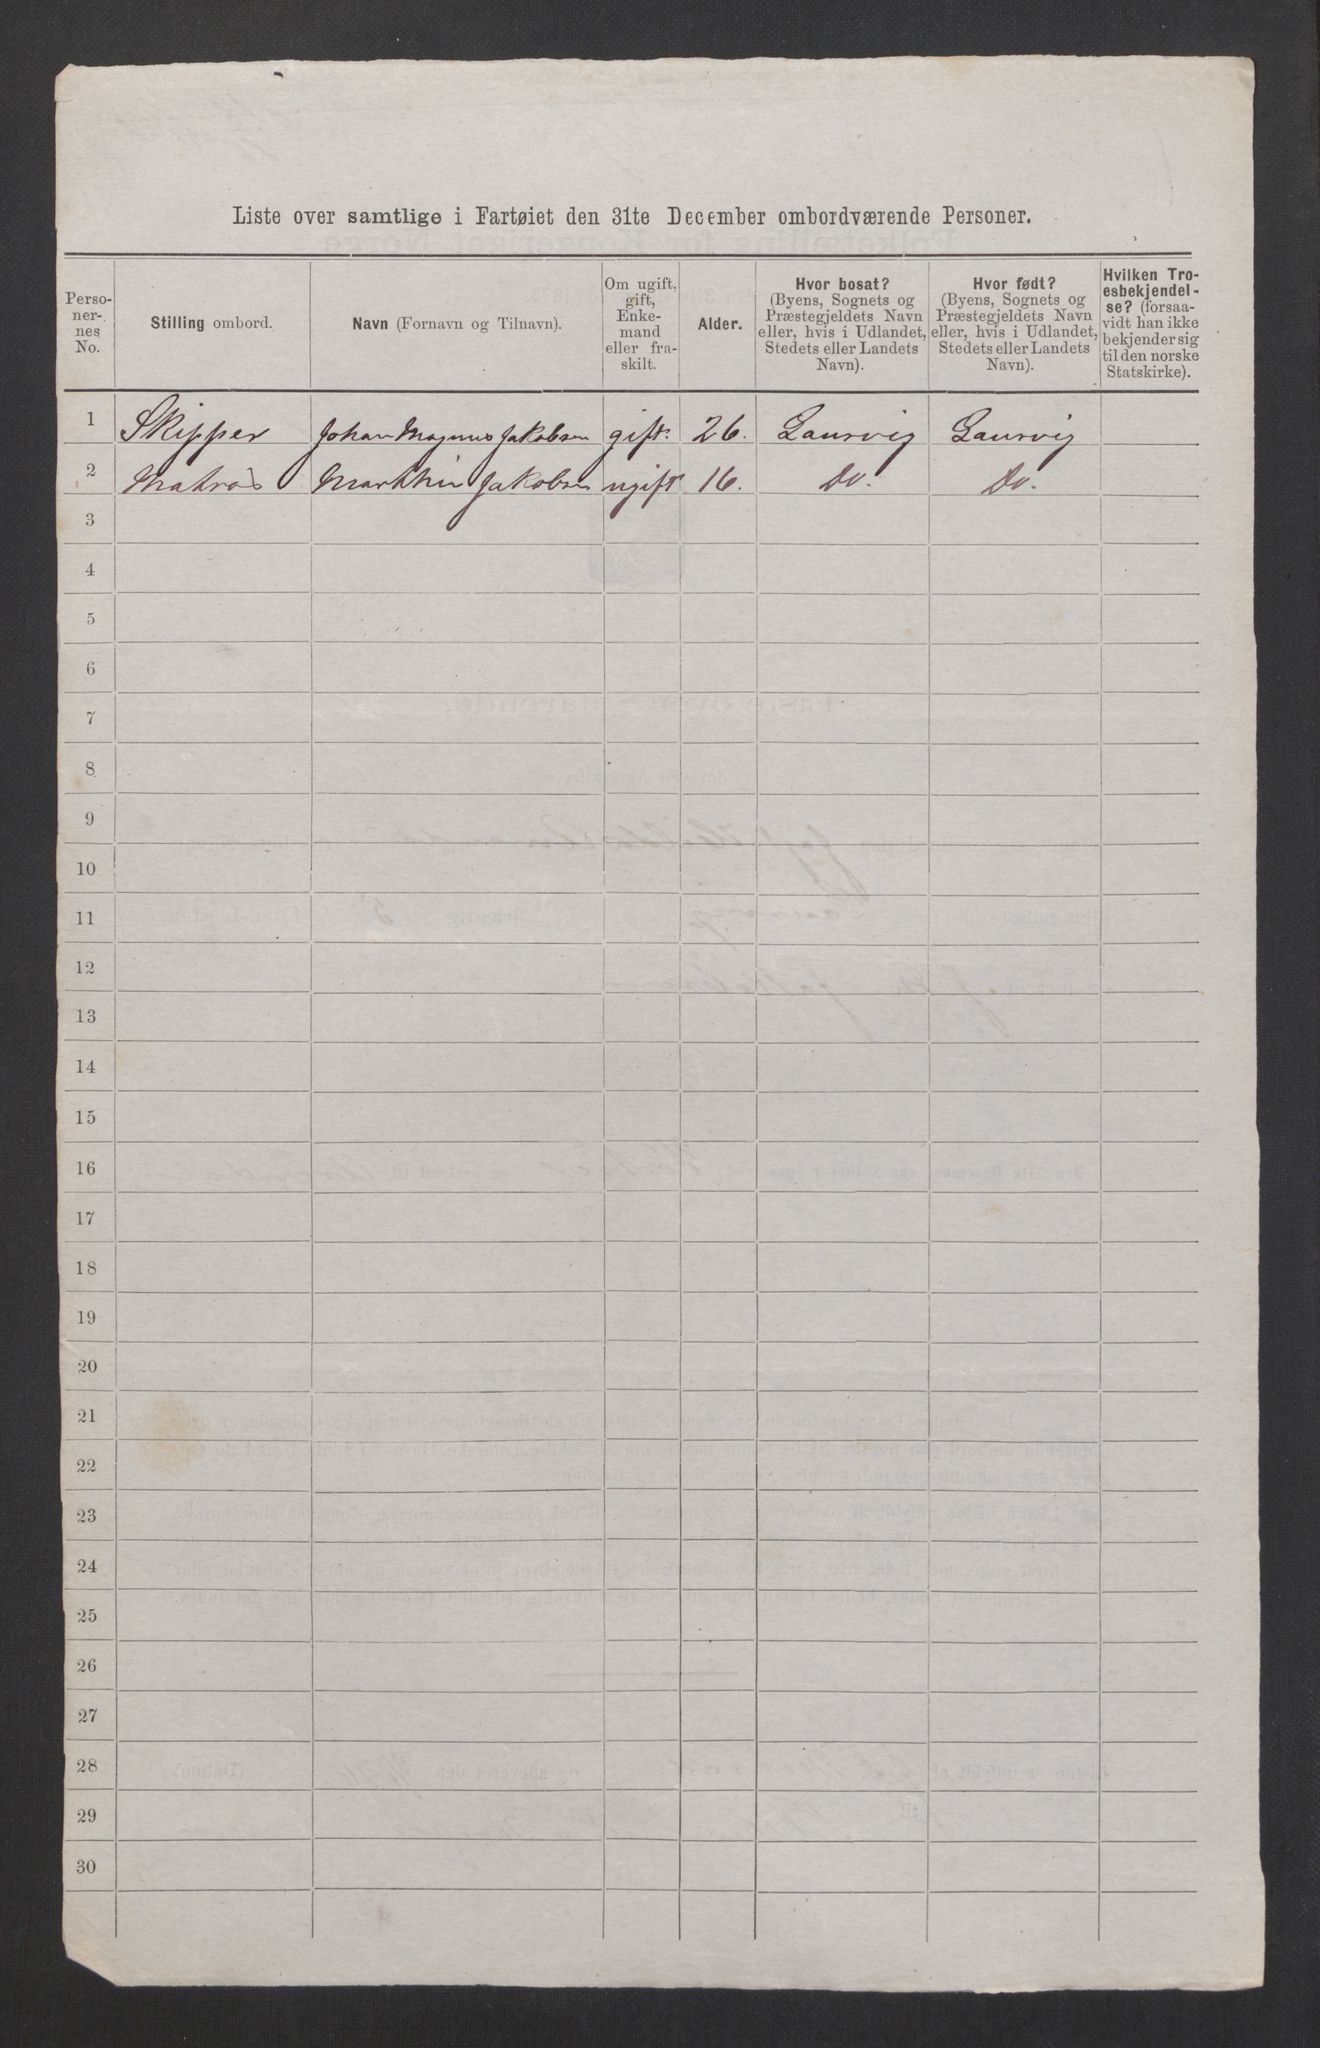 Liste over samtlige i Fartøiet den 31te December ombordværende Personer.
Perso-
ner-
nes
No.
Stilling ombord.
Navn (Fornavn og Tilnavn).
Om ugift,
gift,
Enke-
mand
eller fra-
skilt.
Alder.
Hvor bosat?
(Byens, Sognets og
Præstegjeldets Navn
eller, hvis i Udlandet,
Stedets eller Landets
Navn).
Hvor født?
(Byens, Sognets og
Præstegjeldets Navn
eller, hvis i Udlandet,
Stedets eller Landets
Navn).
Hvilken Tro-
esbekjendel-
se? (forsaa-
vidt han ikke
bekjender sig
til den norske
Statskirke).
1 Skipper Johan Magnus Jakobsen gift. 26. Laurvig Laurvig
2 Matros Jakobsen ugift 16. Do. Do.
3
4
5
6
7
8
9
10
11
12
13
14
15
16
17
18
19
20
21
22
23
24
25
26
27
28
29
30